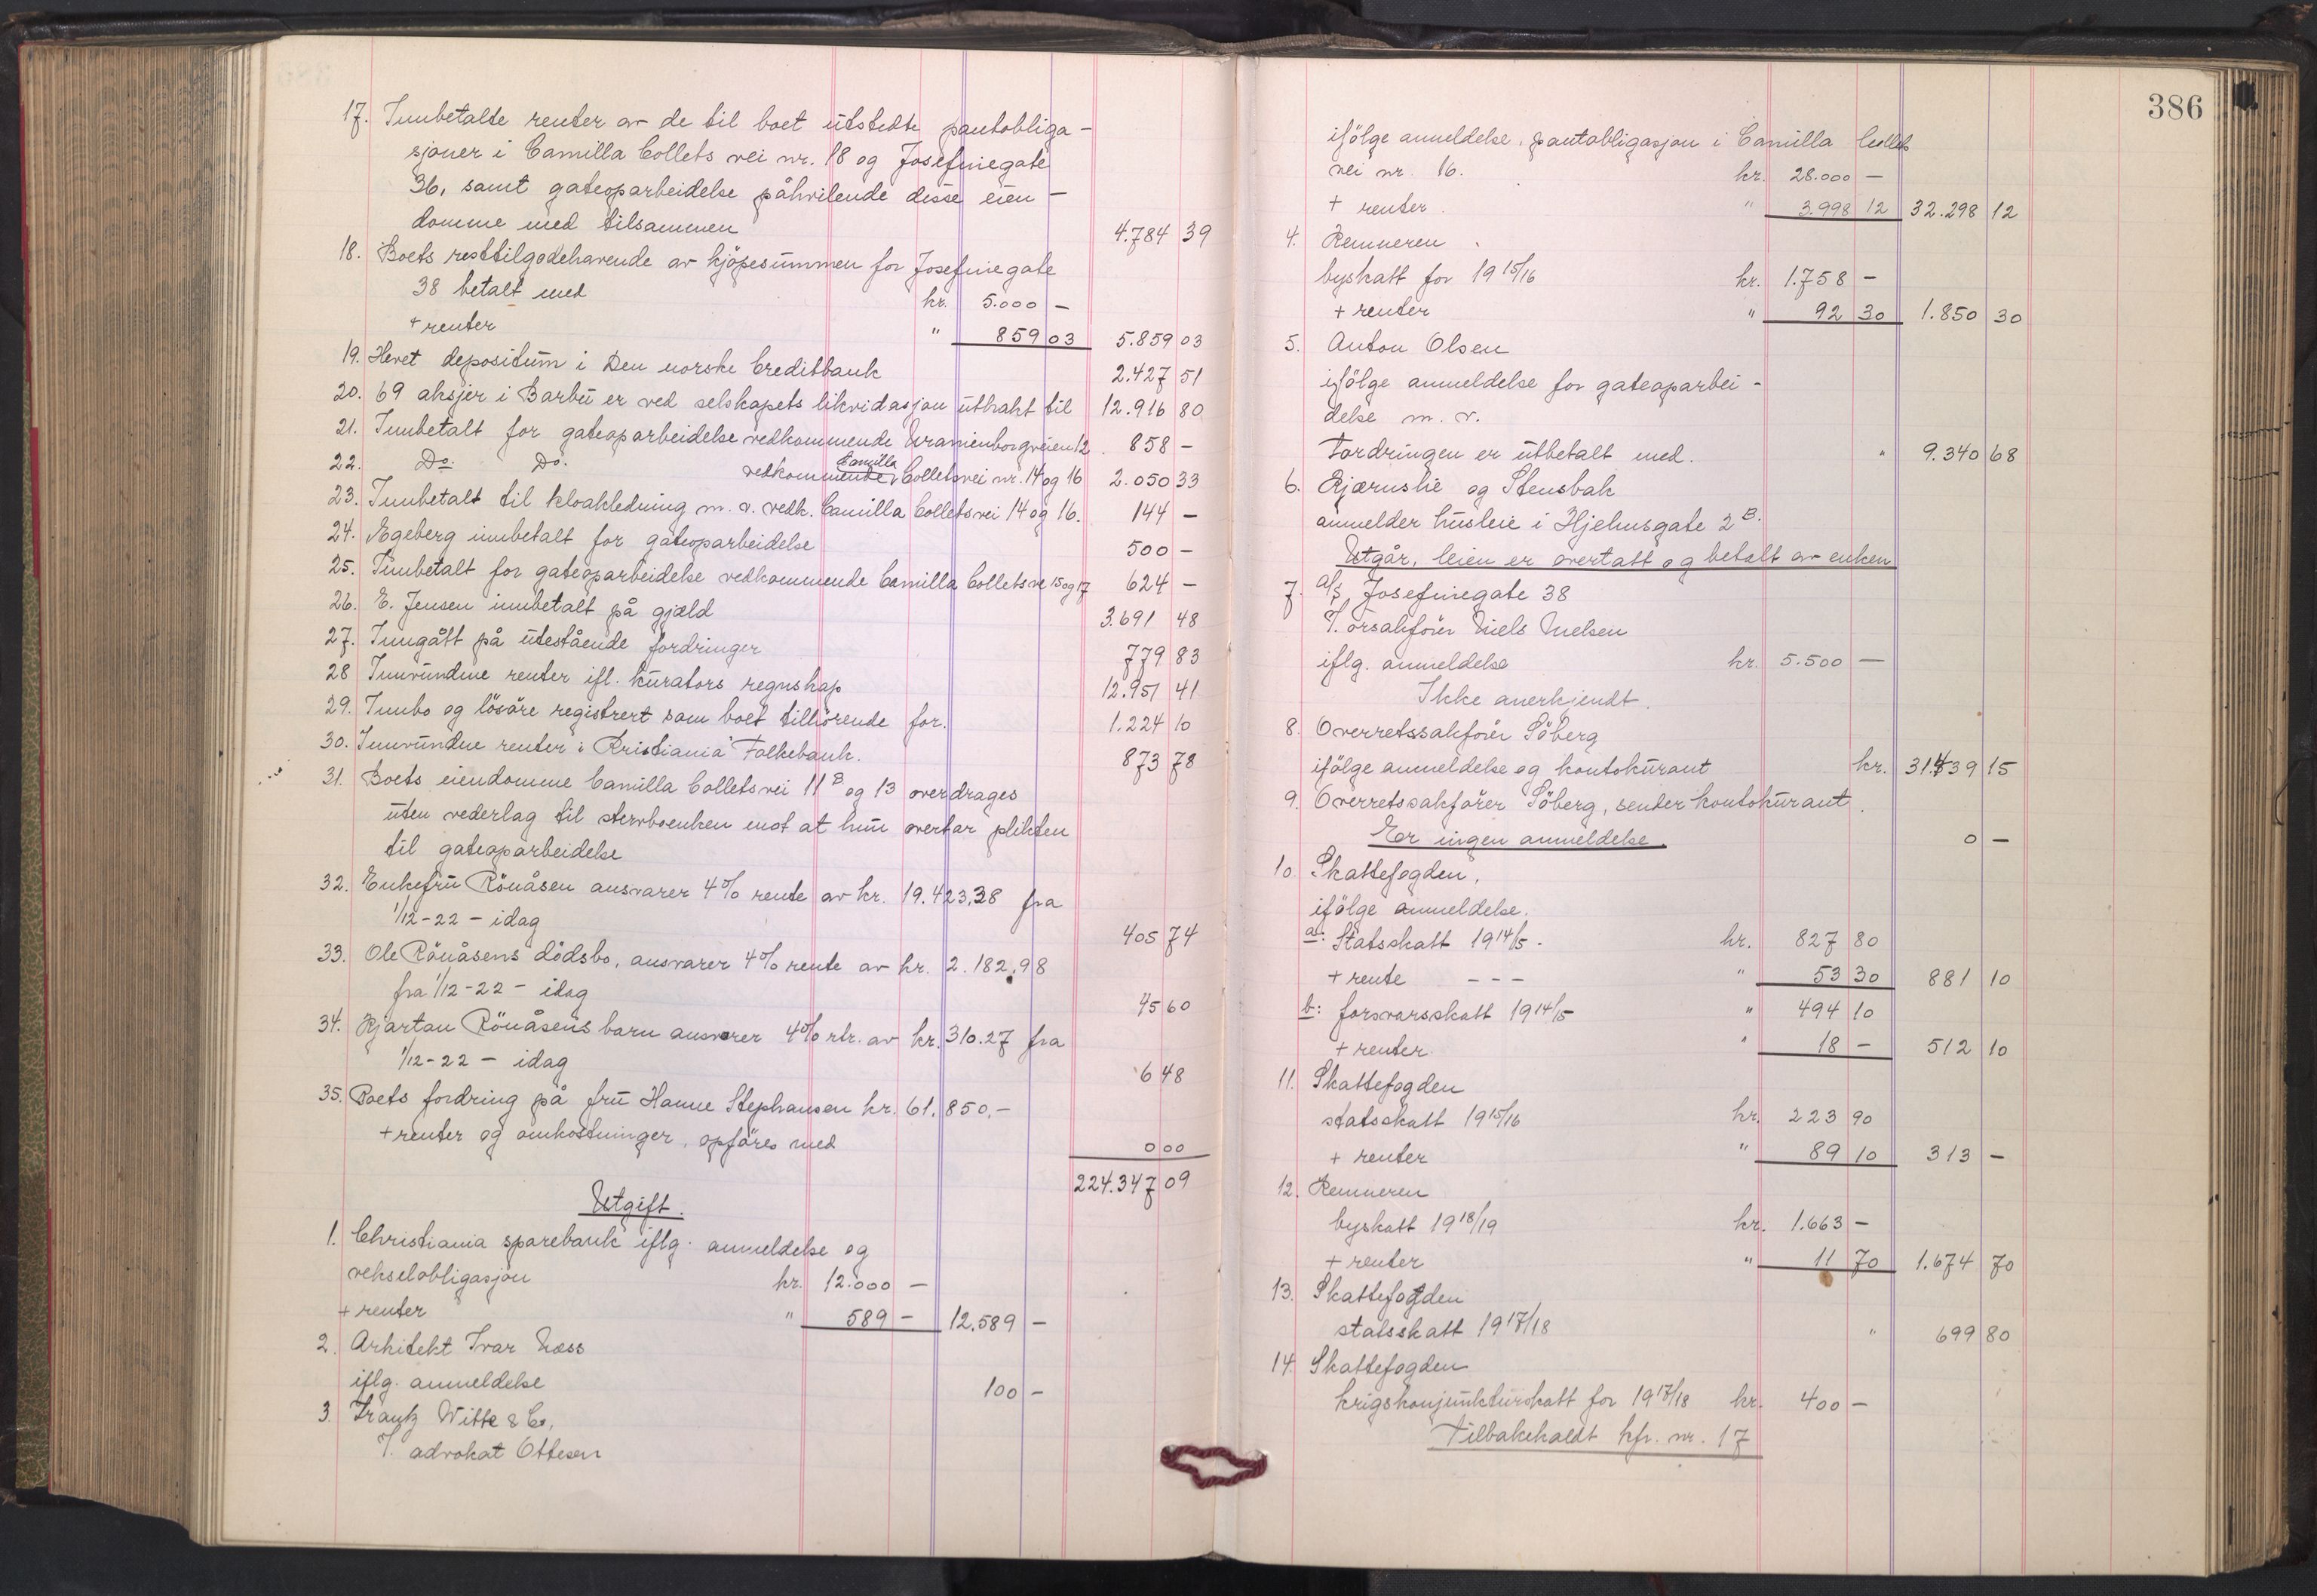 17. Innbetalte renter av de til boet utstedte pantobliga-
sjoner i Camilla Collets vei nr. 18 og Josefinegate
36, samt gateoparbeidelse påhvilende disse eien-
domme med tilsammen 4.784 39
18. Boets resttilgodehavende av kjöpesummen for Josefinegate
38 betalt med kr. 5.000 —
+ renter " 859 03 5.859 03
19. Hevet depositum i Den norske Creditbank 2.427 51
20. 69 aksjer i Barbu er ved selskapets likvidasjon utbrakt til 12.916 80
21. Innbetalt for gateoparbeidelse vedkommende Uranienborgveien 12. 858 —
22. Do. Do. vedkommende Camilla Colletsvei nr. 14 og 16 2.050 33
23. Innbetalt til kloakledning m. v. vedk. Camilla Colletsvei 14 og 16. 144 —
24. Egeberg innbetalt for gateoparbeidelse 500 —
25. Innbetalt for gateoparbeidelse vedkommende Camilla Collets ve 15 og 17 624 —
26. E. Jensen innbetalt på gjæld 3.691 48
27. Inngått på utestående fordringer 779 83
28 Innvundne renter ifl. kurators regnskap 12.951 41
29. Innbo og lösöre registrert som boet tilhörende for. 1.224 10
30. Innvundne renter i Kristiania Folkebank. 873 78
31. Boets eiendomme Camilla Colletsvei 11 B og 13 overdrages
uten vederlag til stervboenken mot at hun overtar plikten
til gateoparbeidelse
32. Enkefru Rönåsen ansvarer 4% rente av kr. 19.423,38 fra
1/12-22 - idag 405 74
33. Ole Rönåsens dödsbo, ansvarer 4% rente av kr. 2.182,98
fra 1/12-22 - idag 45 60
34. Kjartan Rönåsens barn ansvarer 4% rtr. av kr. 310.27 fra
1/12-22 - idag 6 48
35. Boets fordring på fru Hanne Stephansen kr. 61.850,-
+ renter og omkostninger, opföres med 0 00
224.347 09
Utgift.
1. Christiania sparebank iflg. anmeldelse og
vekselobligasjon kr. 12.000 —
+ renter " 589 — 12.589 —
2. Arkitekt Ivar Næss
iflg. anmeldelse 100 —
3. Frantz Witte & Co.
V. advokat Ottesen
386
ifölge anmeldelse, pantobligasjon i Camilla Collets
vei nr. 16. kr. 28.000 —
+ renter. " 3.998 12 32.298 12
4. Kemneren.
byskatt for 1915/16 kr. 1.758 —
+ renter " 92 30 1.850 30
5. Anton Olsen
ifölge anmeldelse for gateoparbei-
delse m. v.
Fordringen er utbetalt med. " 9.340 68
6. Bjærnslie og Stensbak
anmelder husleie i Hjelmsgate 2 B.
Utgår, leien er overtatt og betalt av enken
7. A/S Josefinegate 38
V. orsakförer Niels Nielsen
iflg. anmeldelse kr. 5.500 —
Ikke anerkjendt.
8. Overretssakförer Söberg
ifölge anmeldelse og kontokurant kr. 31.439 15
9. Overretssakförer Söberg, senter kontokurant.
Er ingen anmeldelse. 0 —
10. Skattefogden.
ifölge anmeldelse.
a: Statsskatt 1914/15. kr. 827 80
+ rente - - - " 53 30 881 10
b: forsvarsskatt 1914/15 " 494 10
+ renter " 18 — 512 10
11. Skattefogden
statsskatt 1915/16 kr. 223 90
+ renter " 89 10 313 —
12. Kemneren
byskatt 1918/19 kr. 1.663 —
+ renter " 11 70 1.674 70
13. Skattefogden
statsskatt 1917/18 " 699 80
14. Skattefogden
krigskonjunkturskatt for 1917/18 kr. 400 —
Tilbakekaldt kfr. nr. 17